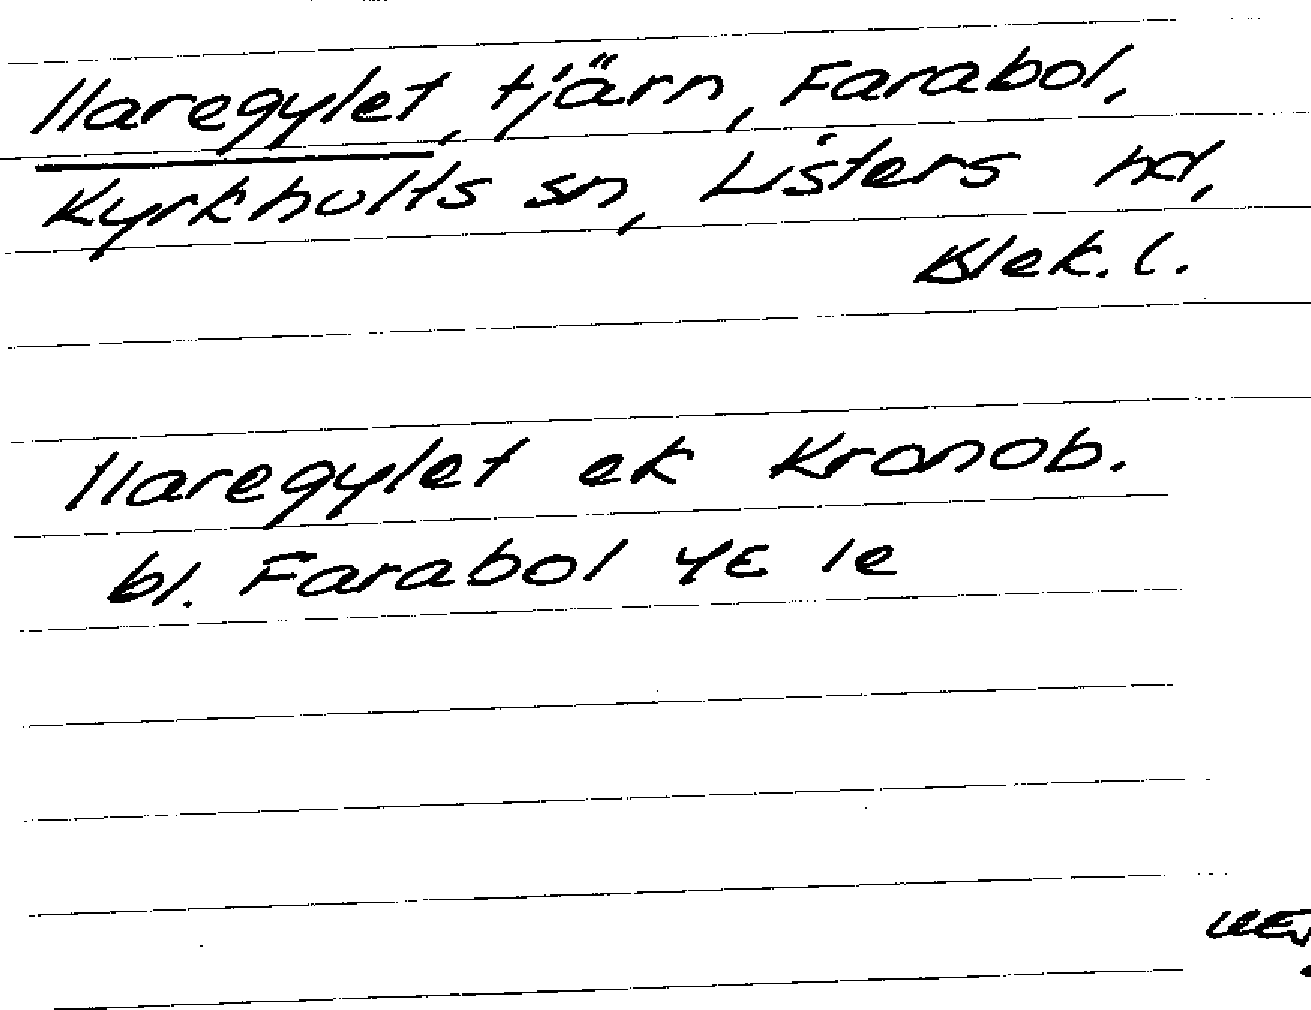 Haregylet, tjärn, Farabol,
Kyrkhults sn, Listers hd,
Blek. l.
Haregylet ek Kronob.
bl. Farabol 4E 1e